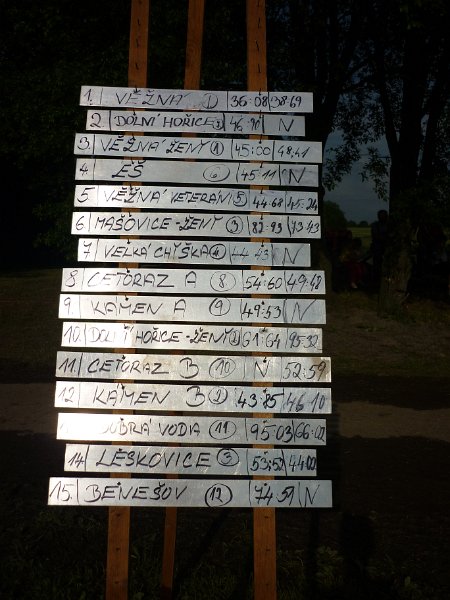 1. VĚŽNÁ 1 36:08 38:69
2. DOLNÍ HOŘICE N
3 VĚŽNÁ ŽENY 1 45:00 48,41
4 EŠ 6 45:11 N
5 VĚŽNÁ VETERÁNI 44:68 45:24
6 MAŠOVICE-ŽENY 3 82:93 73:43
7 VELKÁ CHYŠKA N
8. CETORAZ A 8. 54:60 49:48
9. KÁMEN A 9 49:53 N
10. DOLNÍ HOŘICE-ŽENY 61:64 95:32
11 CETORAZ B 10 N 52:59
12. KÁMEN B 2 43:85 46:10
DOBRÁ VODA 11 95:03 66:02
14. LESKOVICE 3 53:52 44:00
15. BENEŠOV 12 74:51 N